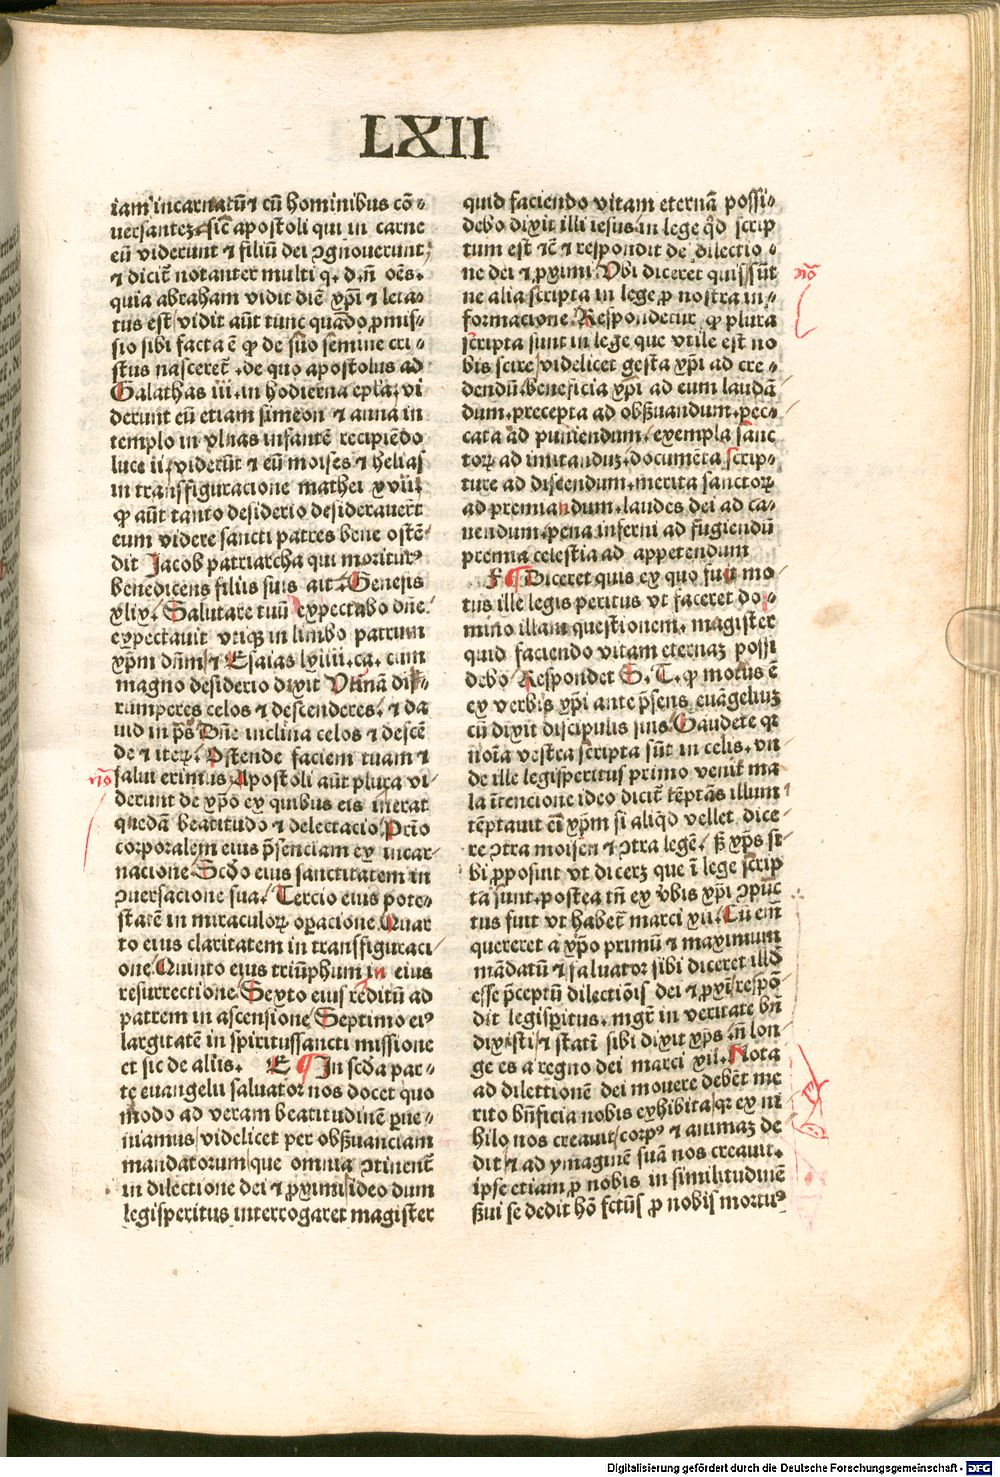 LXII
iam incarnatū ⁊ cū hominibus cō⸗
uersantez sic̄ apostoli qui in carne
eū viderunt ⁊ filiū dei ꝯgnouerunt
⁊ dicit̄ notanter multi q. d. n̄ oēs.
quia abraham vidit diē xp̄i ⁊ leta⸗
tus est/ vidit aūt tunc quādo ꝓmis⸗
sio sibi facta ē ꝙ de suo semine cri⸗
stus nasceret̄ . de quo apostolus ad
Galathas iii. in hodierna epl̄a/ vi
derunt eū etiam simeon ⁊ anna in
templo in vlnas infantē recipiēdo
luce ii. viderūt ⁊ eū moises ⁊ helias
in transffiguracione mathei xvii.
ꝙ aūt tanto desiderio desiderauer̄t
eum videre sancti patres bene ostē⸗
dit Jacob patriarcha qui moriturꝰ
benedicens filiis suis ait. Genesis
xlix. Salutare tuū expectabo dn̄e.
expectauit vtiqꝫ in limbo patrum
xp̄m dn̄m/ ⁊ Esaias lxiiii. ca. cum
magno desiderio dixit Vtinā dis⸗
rumperes celos ⁊ descenderes. ⁊ da
uid in p̄s Dn̄e inclina celos ⁊ descē
de ⁊ iteꝝ. Ostende faciem tuam ⁊
salui erimus Apostoli aūt plura vi⸗
derunt de xp̄o ex quibus eis inerat
quedā beatitudo ⁊ delectacio Prīo
corporalem eius p̄senciam ex incar⸗
nacione Scd̄o eius sanctitatem in
ꝯuersacione sua. Tercio eius pote⸗
statē in miraculoꝝ oꝑacione Quar
to eius claritatem in transfiguraci⸗
one Quinto eius triūphum in eius
resurrectione Sexto eius reditū ad
patrem in ascensione Septimo eiꝰ
largitatē in spiritussancti missione
et sic de aliis. E ¶ In scd̄a par⸗
te euangelii saluator nos docet quo
modo ad veram beatitudinē ꝑue⸗
niamus/ videlicet per obẞuanciam
mandatorum/ que omnia ꝯtinent̄
in dilectione dei ⁊ ꝓximi/ ideo dum
legisperitus interrogaret magister
quid faciendo vitam eternā possi⸗
debo dixit illi iesus in lege qd̄ scrip
tum est ⁊c̄ ⁊ respondit de dilectio⸗
ne dei ⁊ ꝓximi Vbi diceret quis sūt
ne alia scripta in lege ꝓ nostra in⸗
formacione Respondetur ꝙ plura
scripta sunt in lege que vtile est no
bis scire/ videlicet gesta xp̄i ad cre⸗
dendū. beneficia xp̄i ad eum laudā
dum. precepta ad obẞuandum. pec⸗
cata ad puniendum. exempla sanc
toꝝ ad imitanduꝫ. documēta scrip⸗
ture ad discendum. merita sanctoꝝ
ad premiandum. laudes dei ad ca⸗
uendum. pena inferni ad fugiendū
premia celestia ad appetendum
F ¶ Diceret quis ex quo fuit mo⸗
tus ille legis peritus vt faceret do⸗
mino illam questionem. magister
quid faciendo vitam eternaꝫ possi
debo Respondet S. T. ꝙ motus ē
ex verbis xp̄i ante p̄sens euāgeliuꝫ
cū dixit discipulis suis Gaudete qꝛ
noīa vestra scripta sūt in celis. vn
de ille legisperitus primo venit ma
la ītencione ideo dicit̄ tēptās illum
tēptauit em̄ xp̄m si aliqd̄ vellet dice⸗
re ꝯtra moisen ⁊ ꝯtra legē. ẞ xp̄s si⸗
bi ꝓposuit vt diceꝛꝫ que ī lege scrip
ta sunt. postea tn̄ ex v̄bis xp̄i ꝯpūc
tus fuit vt habet̄ marci xii. Cū em̄
quereret a xp̄o primū ⁊ maximum
mādatū ⁊ saluator sibi diceret illd̄
esse p̄ceptū dilectiōis dei ⁊ ꝓxi respō
dit legisꝑitus. mgr̄ in veritate bn̄
dixisti/ ⁊ statī sibi dixit xp̄s. n̄ lon⸗
ge es a regno dei marci xii. Nota
ad dilettionē dei mouere debēt me
rito bn̄ficia nobis exhibita/ qꝛ ex ni
hilo nos creauit/ corpꝰ ⁊ animaꝫ de
dit/ ⁊ ad ymaginē suā nos creauit.
ipse etiam ꝓ nobis in similitudinē
ẞui se dedit hō fctūs ꝓ nobis mortuꝰ
nō
nō
Digitalisierung gefördert durch die Deutsche Forschungsgemeinschaft - DFG